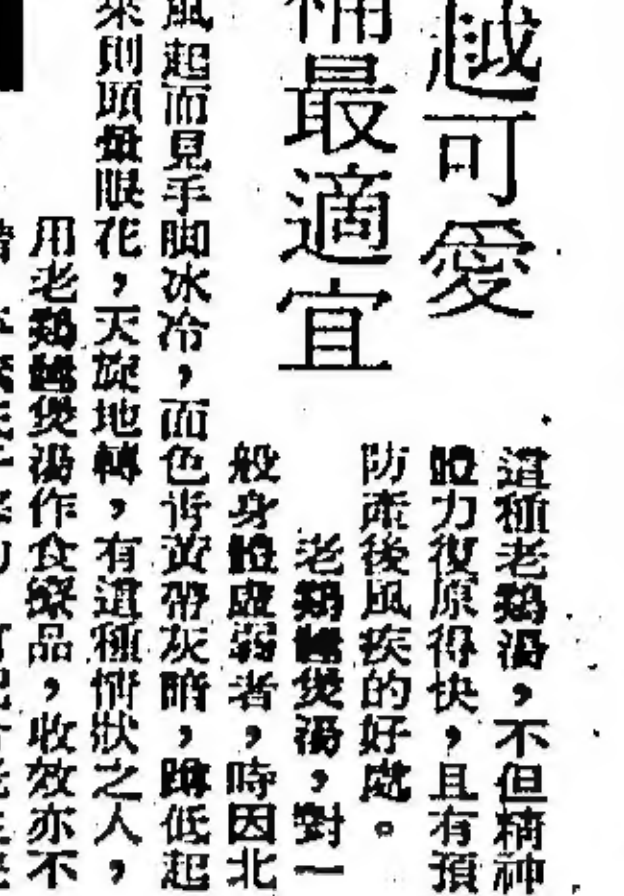 越可愛
補最適宜
這種老鷄湯，不但精神
體力復原得快，且有預
防產後風疾的好處。
老鷄煲湯，對一
般身體虛弱者，時因北
風起而見手脚冰冷，面色青黃帶灰暗，蹲低起
來則頭暈眼花，天旋地轉，有這種情狀之人，
用老鷄煲湯作食療品，收效亦不